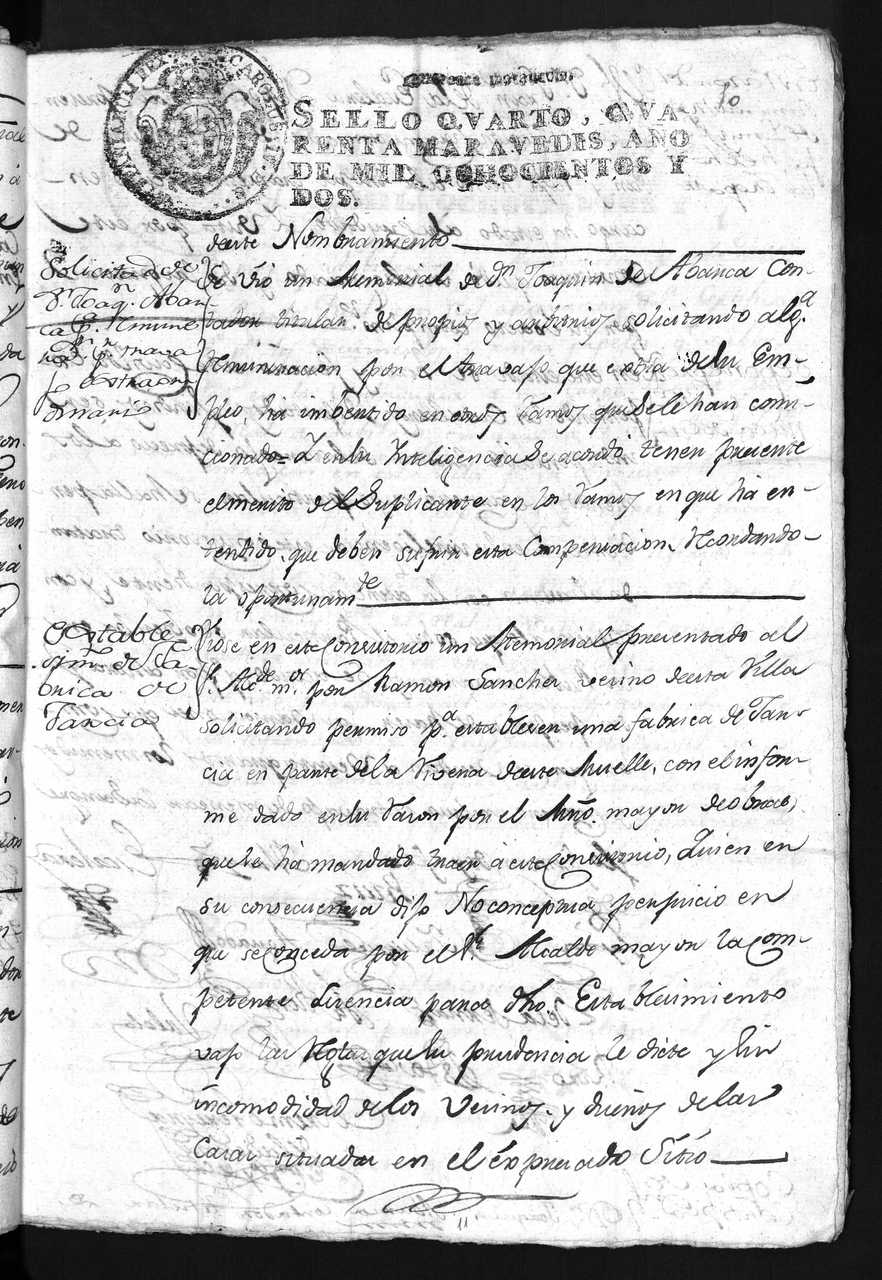 HISPANIARUM REX CAROLUS IV D.G.
quarenta maravedis.
10
SELLO QVARTO, QVA
RENTA MARAVEDIS, AÑO
DE MIL OCHOCIENTOS Y
DOS.
deeste Nombramiento
Solicitud de
Dn Joaqn Aban
ca pr Remune
pr traba
jo extraor
dinario
Se vió un Memorial de Dn Joaquin de Abanca Con-
tador titular de propios y arbitrios, solicitando alga
Remuneracion por el travajo que extra de su Em-
pleo, ha imbertido en otros Ramos que se le han comi-
cionado= Y en su Inteligencia Se acordó tener presente
el merito del Suplicante en los Ramos en que ha en-
tendido, que deben sufrir esta Compensacion Recordando-
la oportunamte
Estable
simto de Fa
brica de
Jarcia
Viose en este Consistorio un Memorial presentado al
Sr Alcde mor por Ramon Sanchez vecino deesta Villa
solicitando permiso pa establecer una fabrica de Jar-
cia en parte de la Rivera deeste Muelle, con el infor-
me dado en su razon por el Mro mayor de obras,
que se ha mandado traer á este Consistorio, Quien en
su consecuencia dijo No conceptua perjuicio en
que se conceda por el Sr Alcalde mayor la Com-
petente Licencia para dho Establecimiento
vajo las Reglas que su prudencia le dicte y sin
incomodidad de los Vecinos y dueños de las
Casas situadas en el expresado Sitio